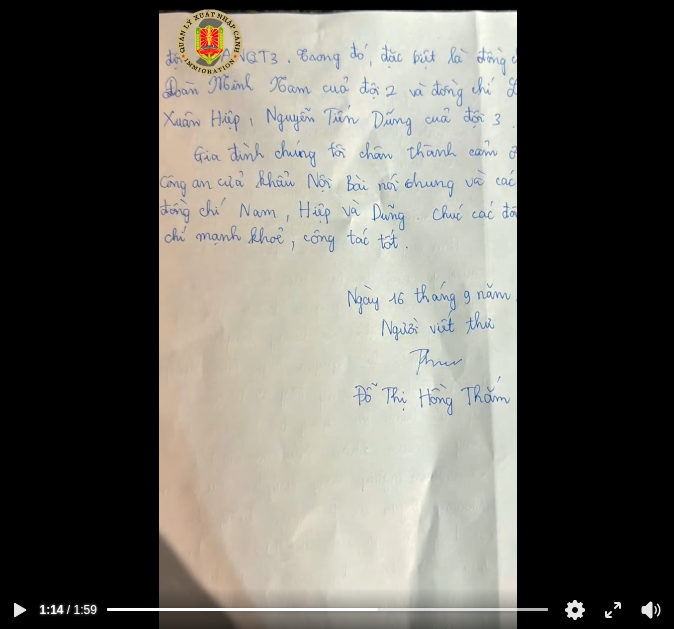 QUẢN LÝ XUẤT NHẬP CẢNH
IMMIGRATION
ANQT3. Trong đó, đặc biệt là đồng
Đoàn Minh Nam của đội 2 và đồng chí
Xuân Hiệp, Nguyễn Tiến Dũng của đội 3.
Gia đình chúng tôi chân thành cảm
Công an cửa khẩu Nội Bài nói chung và các
đồng chí Nam, Hiệp và Dũng. Chúc các
chí mạnh khoẻ, công tác tốt.
Ngày 16 tháng 9 năm
Người viết thư
Đỗ Thị Hồng Thắm
1:14 / 1:59